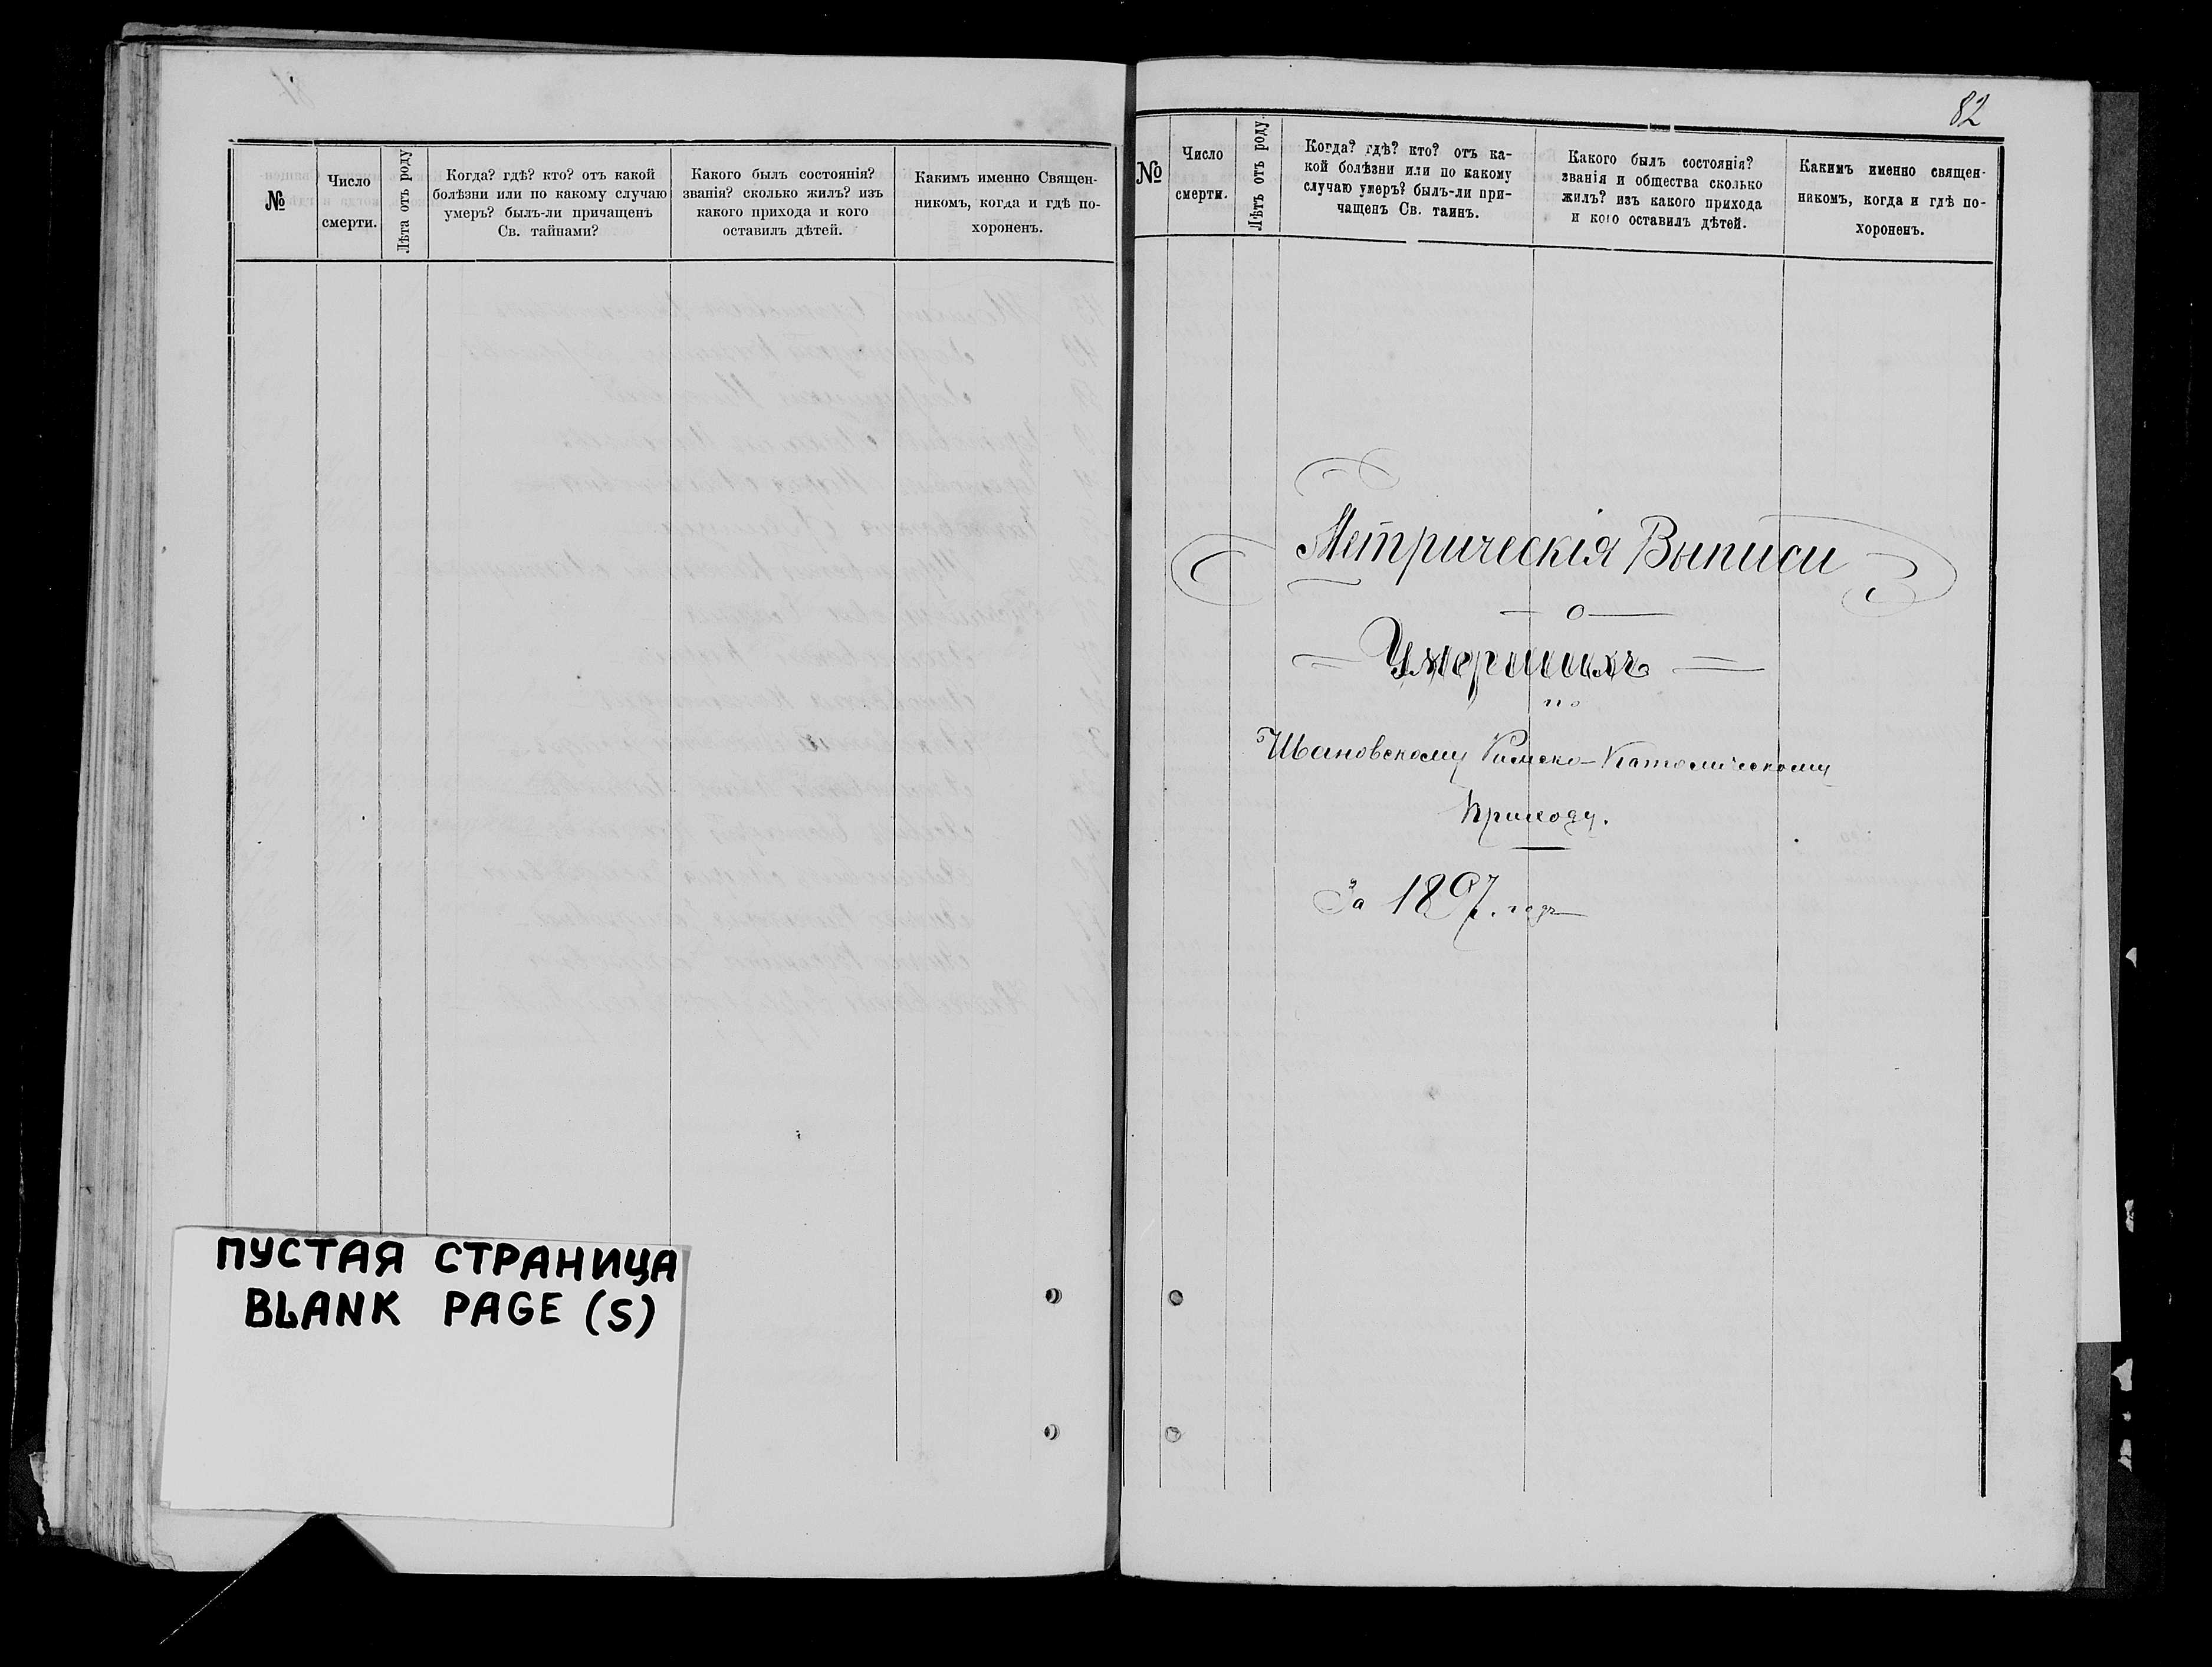 №
Число
смерти.
Лѣта отъ роду
Когда? гдѣ? кто? отъ какой
болѣзни или по какому случаю
умеръ? былъ-ли причащенъ
Св. тайнами?
Какого былъ состоянія?
званія? сколько жилъ? изъ
какого прихода и кого
оставилъ дѣтей.
Какимъ именно Священ-
никомъ, когда и гдѣ по-
хороненъ.
ПУСТАЯ СТРАНИЦА
BLANK PAGE (S)
82
№
Число
смерти.
Лѣтъ отъ роду.
Когда? гдѣ? кто? отъ ка-
кой болѣзни или по какому
случаю умеръ? былъ-ли при-
чащенъ Св. таинъ.
Какого былъ состоянія?
званія и общества сколько
жилъ? изъ какого прихода
и кого оставилъ дѣтей.
Какимъ именно священ-
никомъ, когда и гдѣ по-
хороненъ.
Метрическія Выписи
о
Умершихъ
по
Ивановскому Римско-Католическому
Приходу.
За 1897. годъ